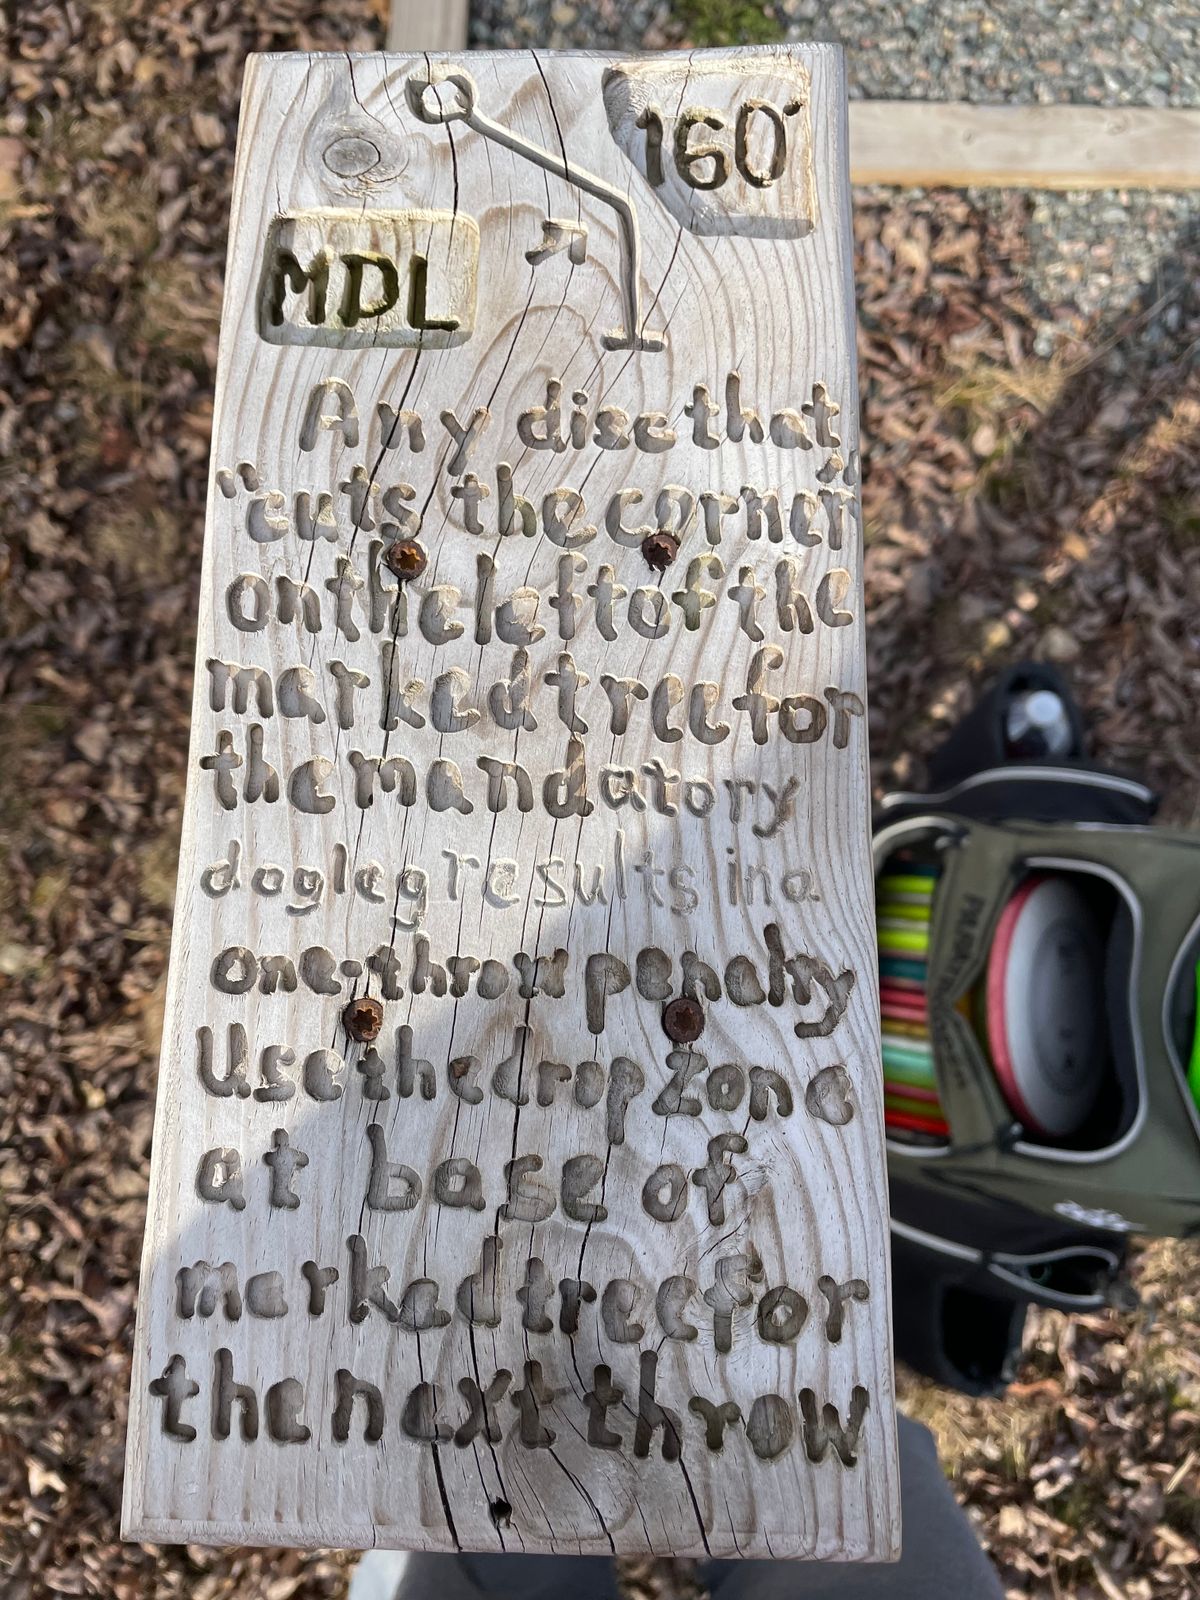 160'
MDL
Any disc that
"cuts the corner"
on the left of the
marked tree for
the mandatory
dogleg results in a
one-throw penalty
Use the drop zone
at base of
marked tree for
the next throw